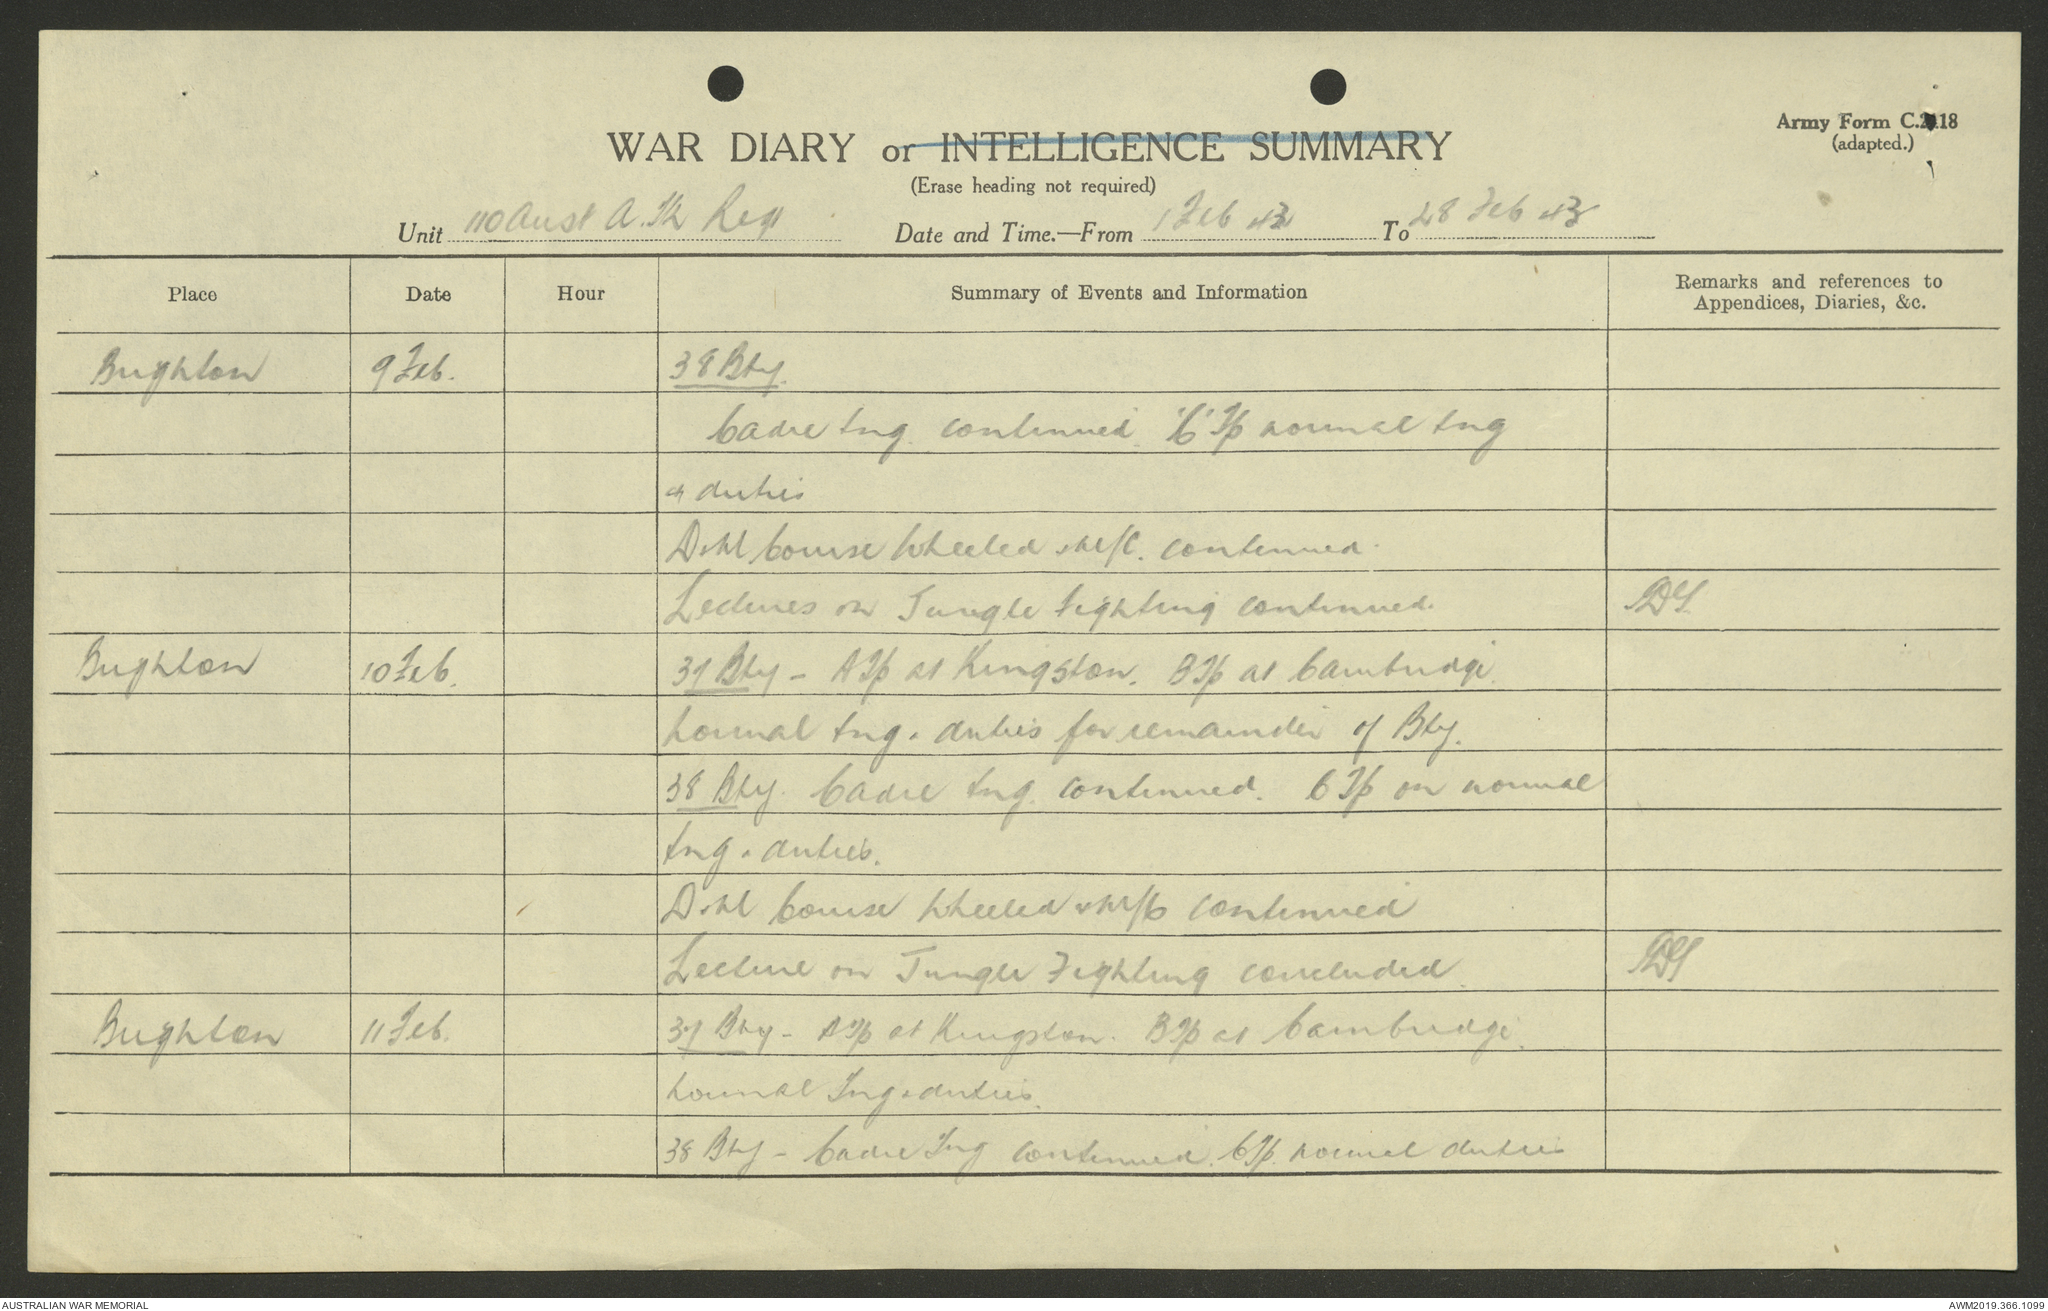 Army Form C.2118
(adapted.)
WAR DIARY or INTELLIGENCE SUMMARY
(Erase heading not required)
Unit 110 Aust A.Tk Regt Date and Time.—From 1 Feb 43 To 28 Feb 43
Place Date Hour Summary of Events and Information Remarks and references to
Appendices, Diaries, &c.
Brighton 9 Feb. 38 Bty.
Cadre tng. continued. 'C' Tp normal tng
& duties
D & M Course Wheeled continued.
Lectures on Jungle Fighting continued.
Brighton 10 Feb. 37 Bty – A Tp at Kingston. B Tp at Cambridge.
Normal tng & duties for remainder of Bty.
38 Bty. Cadre tng. continued. C Tp on normal
tng & duties.
D & M Course Wheeled continued
Lecture on Jungle Fighting concluded.
Brighton 11 Feb. 37 Bty – A Tp at Kingston. B Tp at Cambridge.
Normal Tng & duties.
38 Bty – Cadre Tng continued. C Tp. normal duties
AUSTRALIAN WAR MEMORIAL AWM2019.366.1099